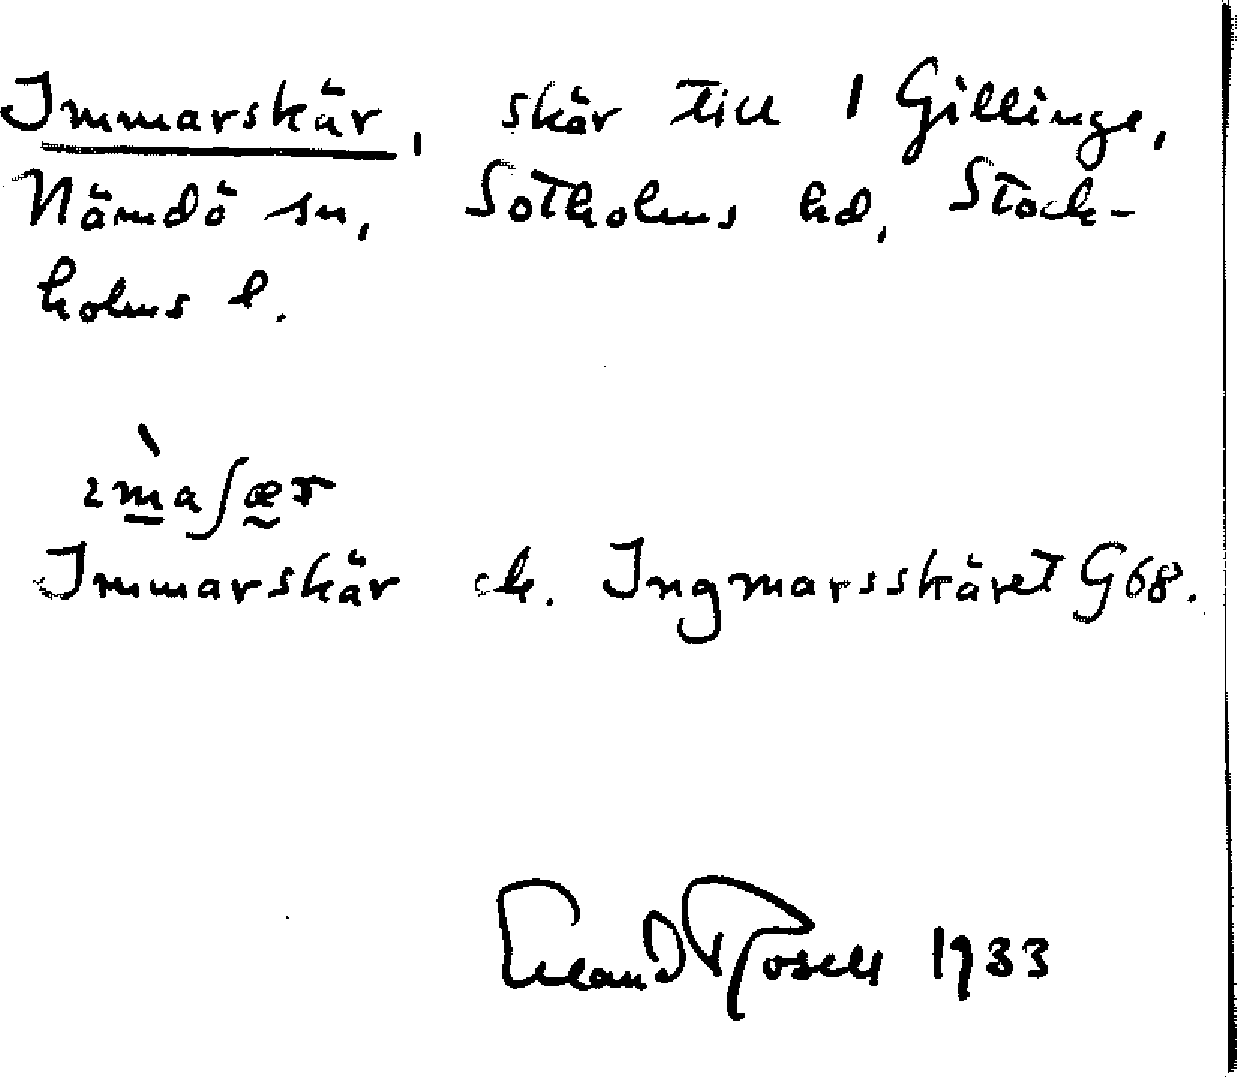 Immarskär, skär till 1 Gillinge,
Nämdö sn, Sotholms hd, Stock-
holms l.
ɩm̀aʃær
Immarskär ek. Ingmarsskäret G68.
Erland Rosell 1933